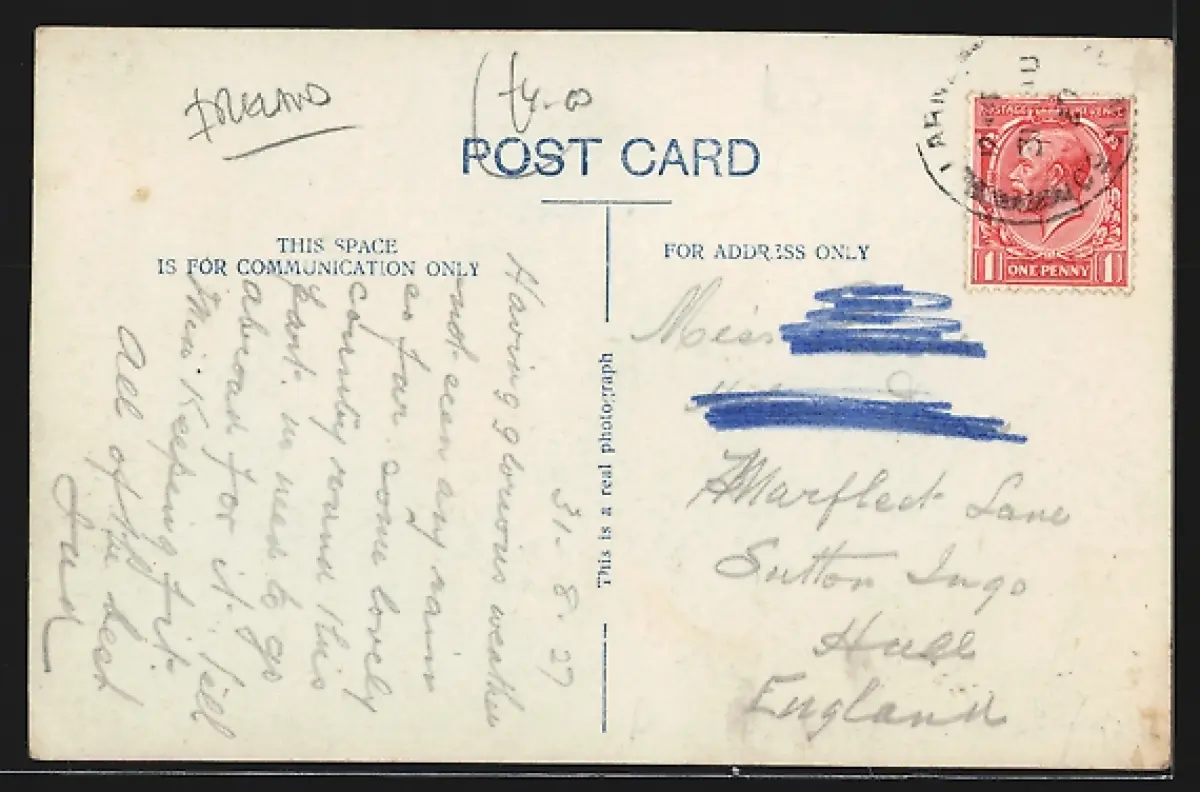 IRELAND
£4-00
POST CARD
THIS SPACE
IS FOR COMMUNICATION ONLY
FOR ADDRESS ONLY
This is a real photograph
31-8-27
Having glorious weather
not seen any rain
so far. some lovely
country round this
part. no need to go
abroad for it. Still
Keeping fit.
All of the best
POSTAGE REVENUE
1 ONE PENNY 1
LARN
Miss
Marfleet Lane
Sutton Ings
Hull
England